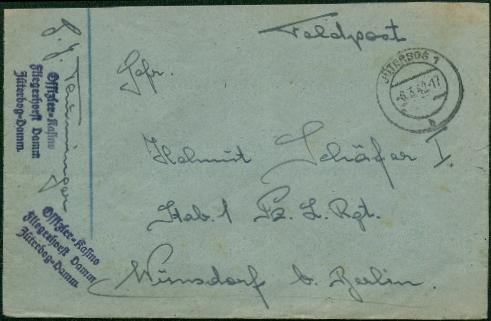 Feldpost
JÜTERBOG 1
-6.3.42.-17
Gefr.
Helmut Schäfer I.
Pz. L. Rgt.
Wünsdorf b. Berlin.
Offizier-Kasino
Fliegerhorst Damm
Jüterbog-Damm.
Offizier-Kasino
Fliegerhorst Damm
Jüterbog-Damm.